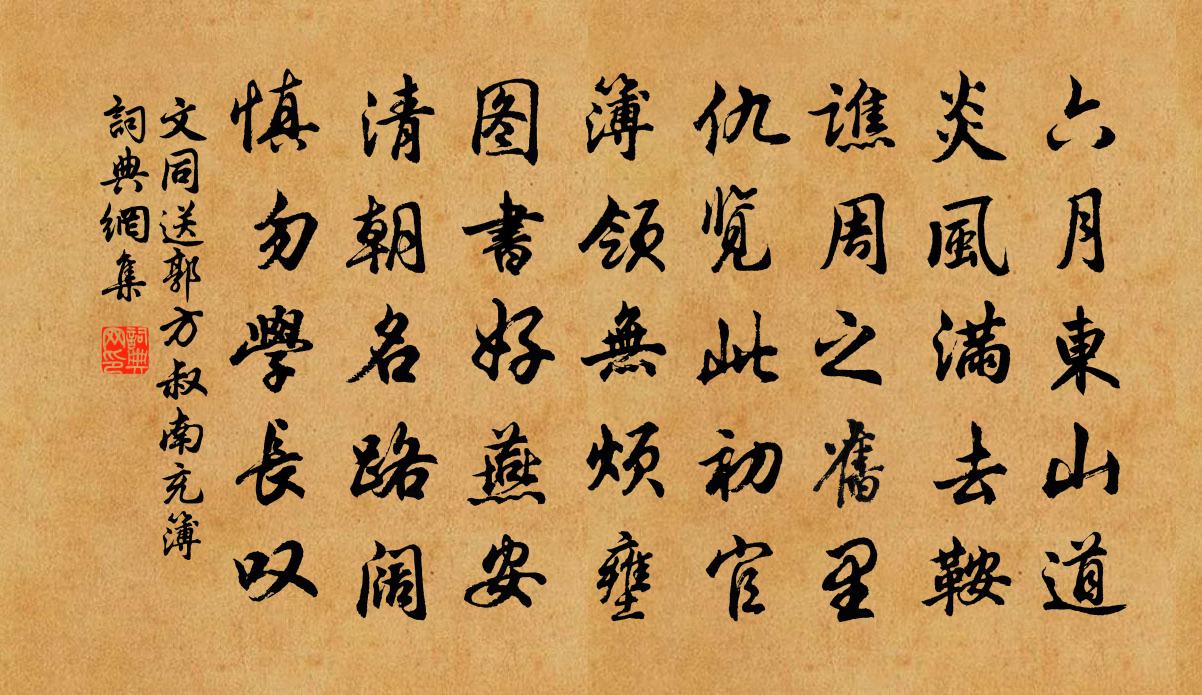 六月東山道
炎風满去鞍
譙周之舊里
仇览此初官
簿领無烦壅
图書好燕安
清朝名路阔
慎勿學長叹
文同送郭方叔南充簿
詞典網集
詞典網印